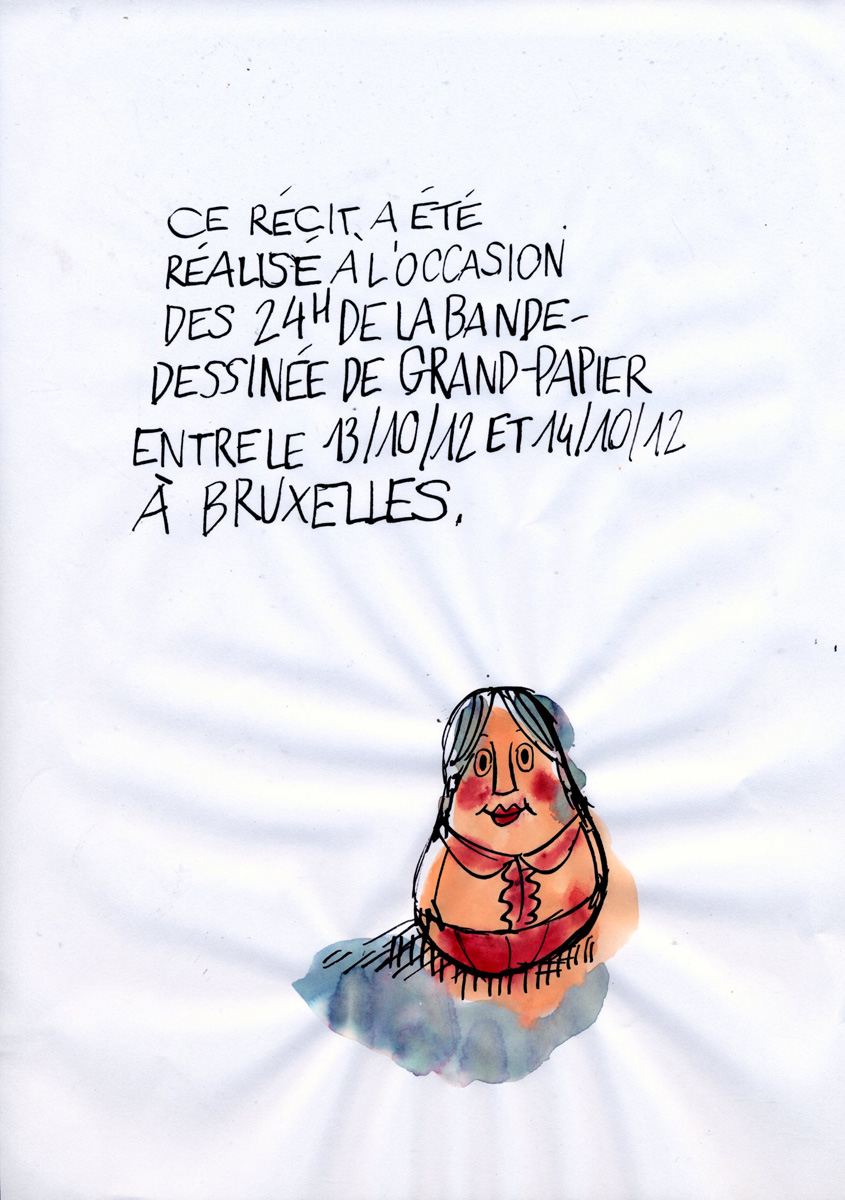 CE RÉCIT A ÉTÉ
RÉALISÉ À L'OCCASION
DES 24H DE LA BANDE-
DESSINÉE DE GRAND-PAPIER
ENTRE LE 13/10/12 ET 14/10/12
À BRUXELLES.